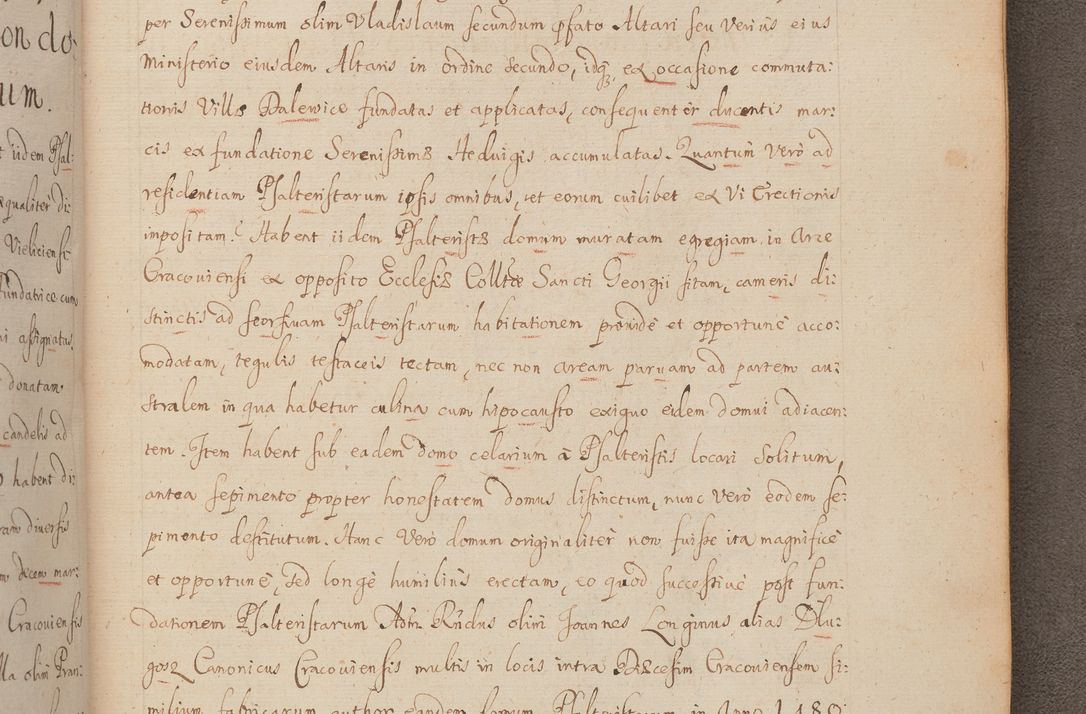 on do:
um.
t iidem Psal:
qualiter di:
Vieliciensi
fundatrice cum
ni assignatus
donatam
candelis ad
habent di:
ram diversis
m decem mar:
Cracoviensis
lla olim Pran:
per Serenissimum olim Vladislaum secundum pfato Altari seu verius eius
Ministerio eiusdem Altaris in ordine secundo, idq; ex occasione commuta:
tionis Villæ Dalewice fundatas et applicatas, consequenter ducentis mar:
cis ex fundatione Serenissimæ Heduigis accumulatas. Quantum Verò ad
residentiam Psalteristarum ipsis omnibus, et eorum cuilibet ex Vi Erectionis
impositam. Habent iidem Psalteristæ domum muratam egregiam in Arce
Cracoviensi ex opposito Ecclesiæ Colltæ Sancti Georgii sitam, cameris di:
stinctis ad seorsivam Psalteristarum habitationem providè et opportunè acco:
modatam, tegulis testaceis tectam, nec non aream parvam ad partem au:
stralem in qua habetur culina cum hipocausto exiguo eidem domui adiacen:
tem. Item habent sub eadem domo celarium à Psalteristis locari solitum,
antea sepimento propter honestatem domus distinctum, nunc verò eodem se:
pimento destitutum. Hanc Verò domum originaliter non fuisse ita magnificè
et opportunè, sed longè humilius erectam, eo quod successivè post fun:
dationem Psalteristarum Adm Rndus olim Joannes Longinus alias Dlu:
gosz Canonicus Cracoviensis multis in locis intra Diæcesim Cracoviensem si:
milium fabricarum author eandem domum Psalteristarum in Anno 1480